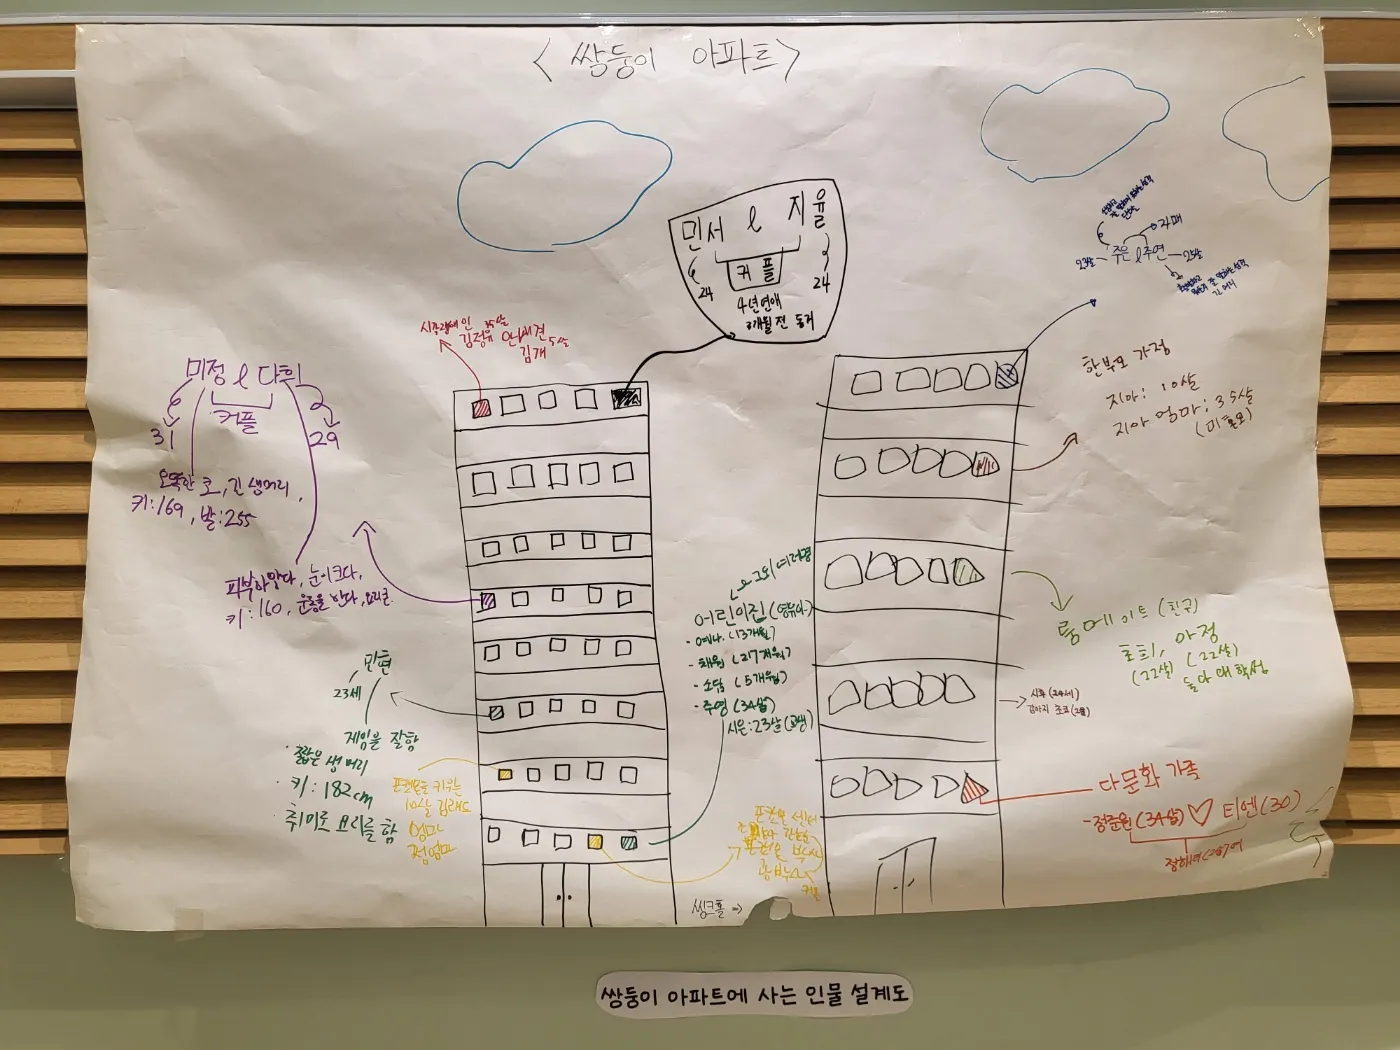 <쌍둥이 아파트>
민서 & 지율
커플
24
24
4년연애
3개월 전 동거
자매
23살
주은 & 주연
25살
시각장애인
김정유
35살
안내견
김개
5살
미정 & 다희
커플
31
29
오똑한 코, 긴 생머리,
키:169, 발:255
피부하얗다, 눈이크다,
키:160, 운동을
한부모 가정
지아: 10살
지아 엄마: 35살
(미혼모)
그외 여러명
어린이집 (영유아)
- 예나 (13개월)
- 채원 (27개월)
- 소담 (5개월)
- 주영 (34살)
시은: 23살
룸메이트 (친구)
(22살)
아정
(22살)
둘다 대학생
민현
23세
게임을 잘함
· 짧은 생머리
· 키: 182cm
· 취미로 요리를 함
시후 (24세)
강아지 초코 (2살)
포켓몬을 키우는
10살
엄마
다문화 가족
- 정준원(34살) ♡ 티엔(30)
씽크홀 ⇒
쌍둥이 아파트에 사는 인물 설계도